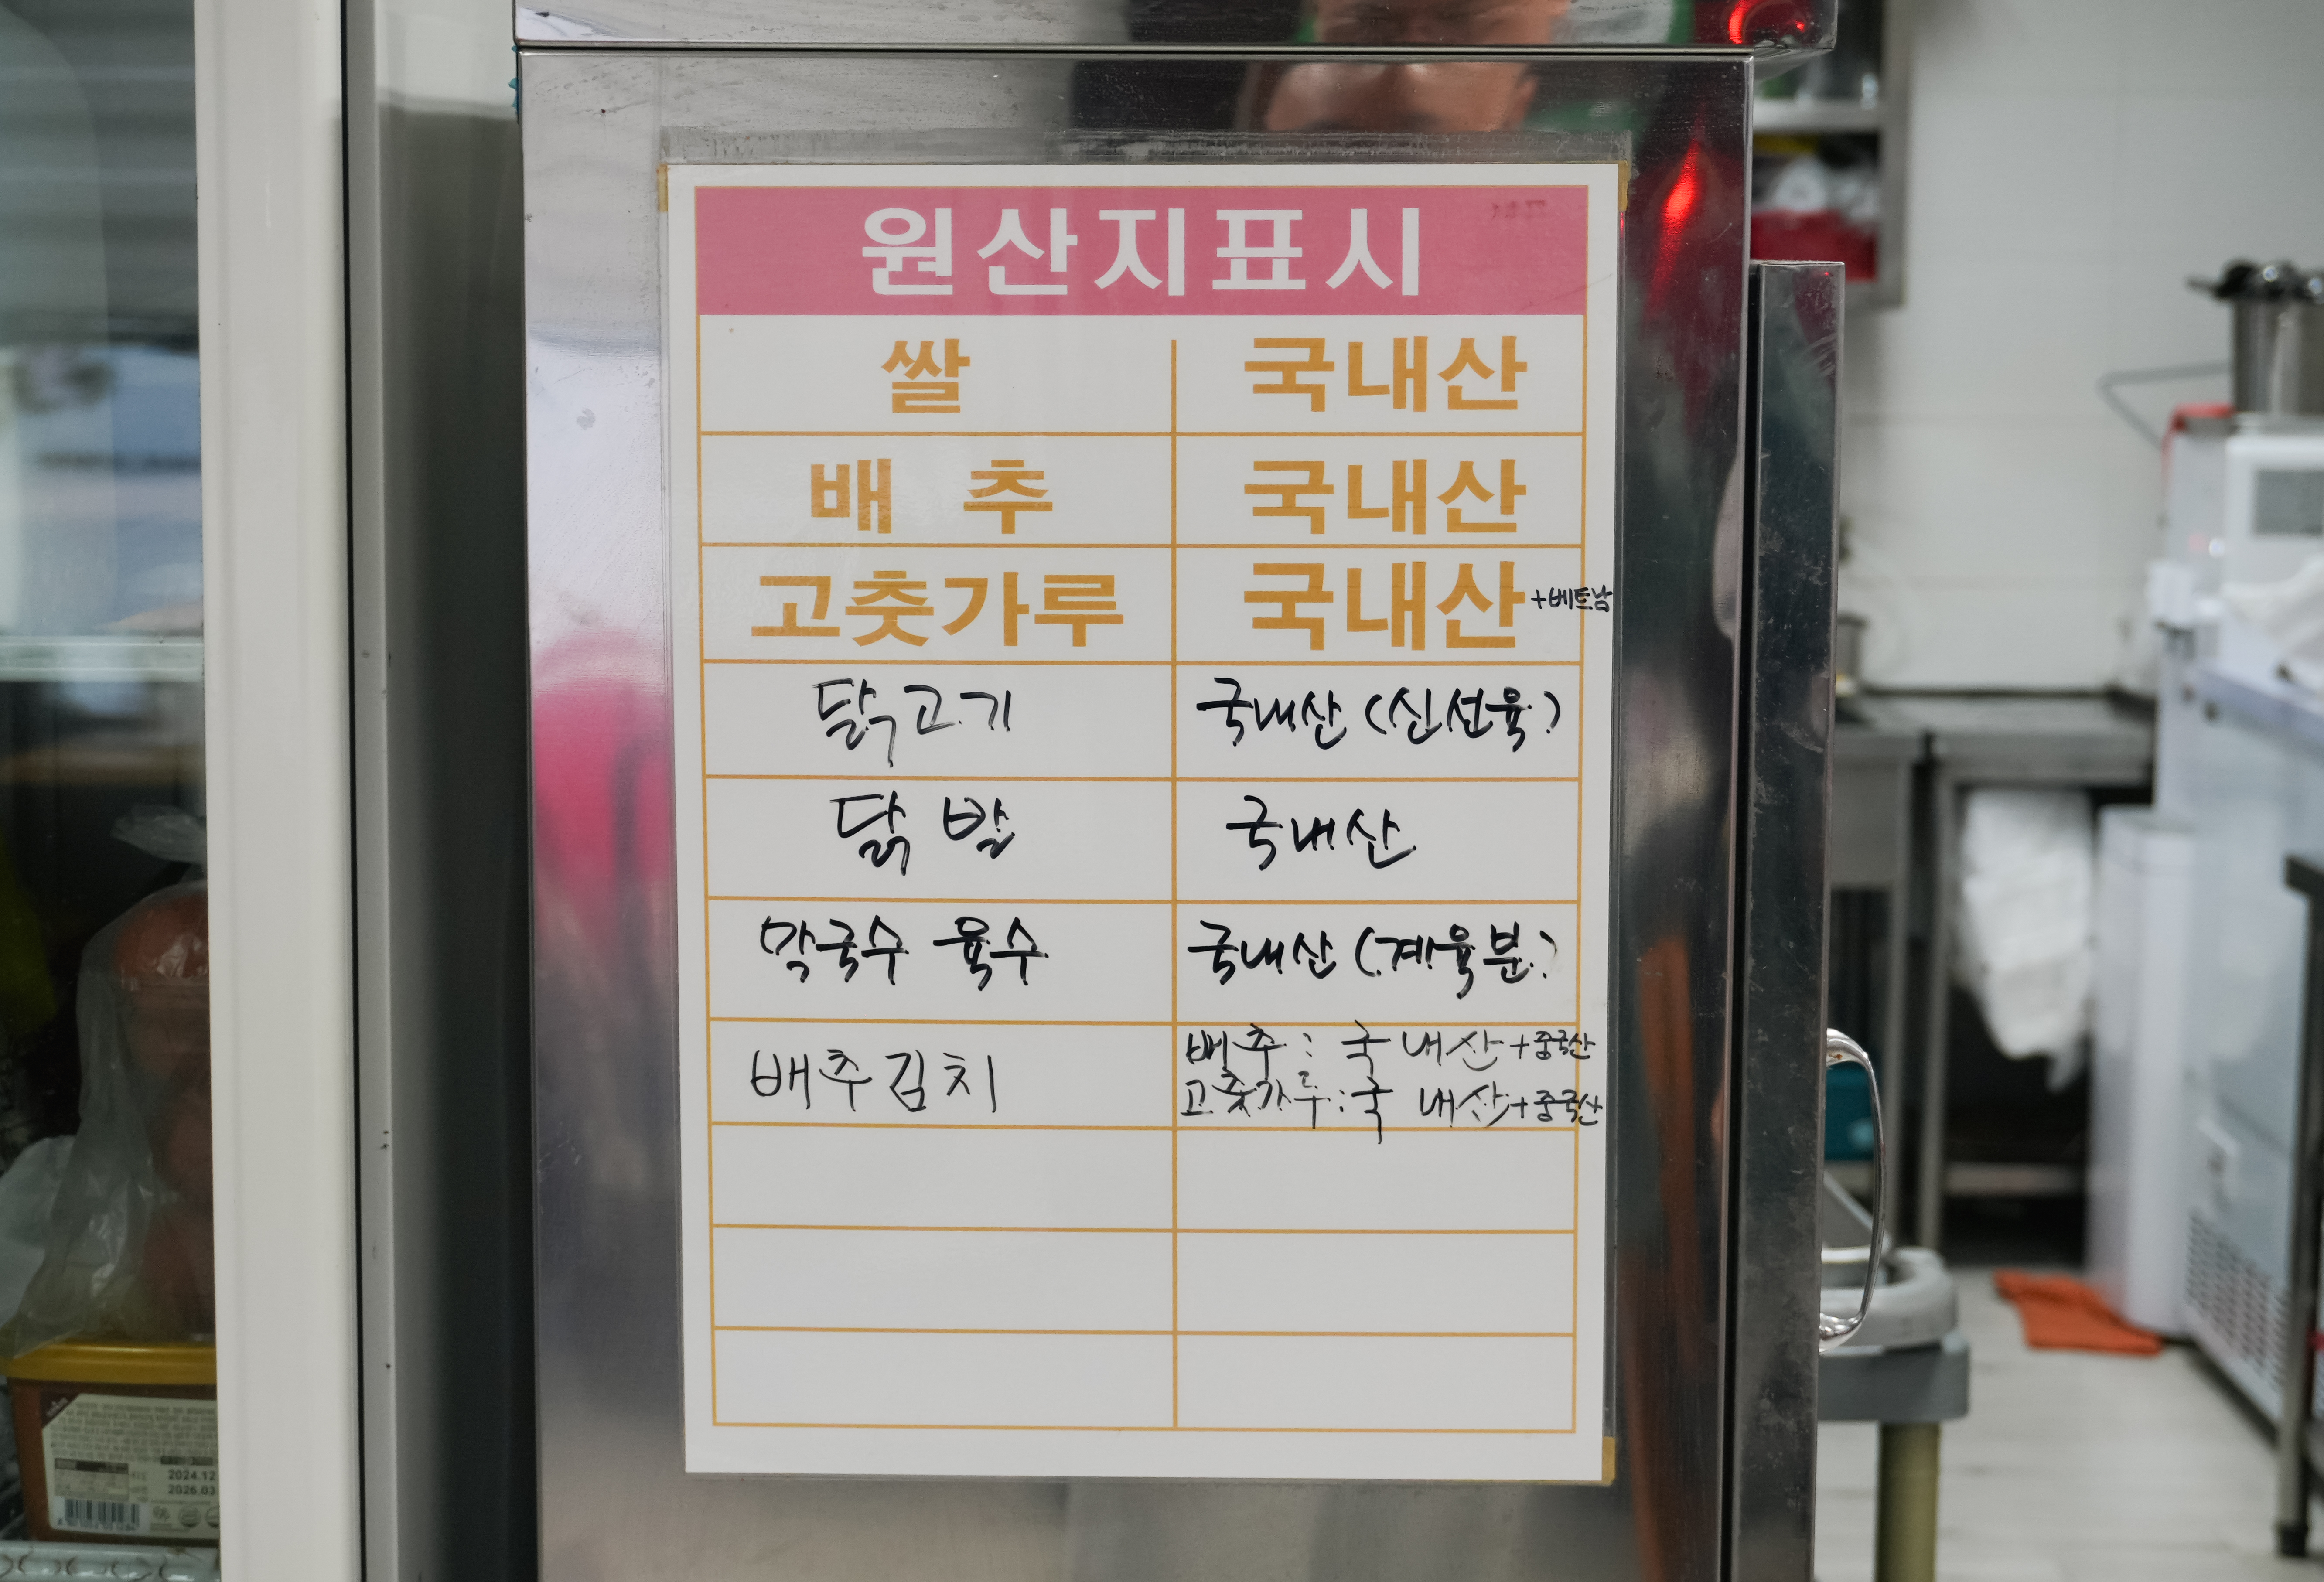 원산지표시
쌀 국내산
배 추 국내산
고춧가루 국내산 +베트남
닭고기 국내산 (신선육)
닭 발 국내산
막국수 육수 국내산 (계육분)
배추김치 배추: 국내산+중국산
고춧가루:국내산+중국산
2024.12
2026.03